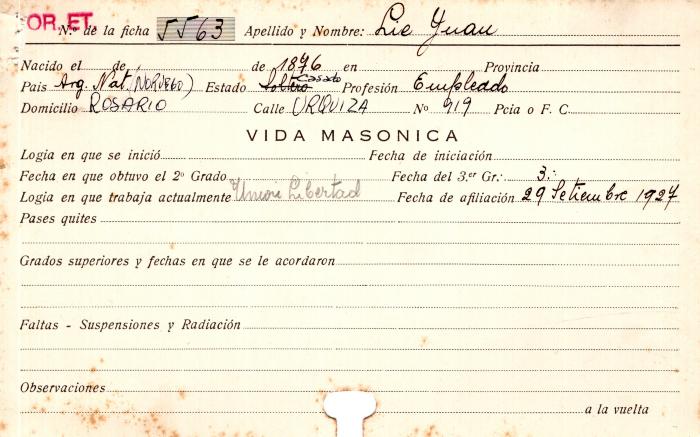 OR. ET.
N.º de la ficha 5563 Apellido y Nombre: Lie Juan
Nacido el de de 1896 en Provincia
Pais Arg. Nat. (NORUEGO) Estado Soltero Casado Profesión Empleado
Domicilio ROSARIO Calle URQUIZA Nº 919 Pcia o F. C.
VIDA MASONICA
Logia en que se inició Fecha de iniciación
Fecha en que obtuvo el 2º Grado Fecha del 3.er Gr.: 3.:
Logia en que trabaja actualmente Union Libertad Fecha de afiliación 29 Setiembre 1927
Pases quites
Grados superiores y fechas en que se le acordaron
Faltas - Suspensiones y Radiación
Observaciones
a la vuelta